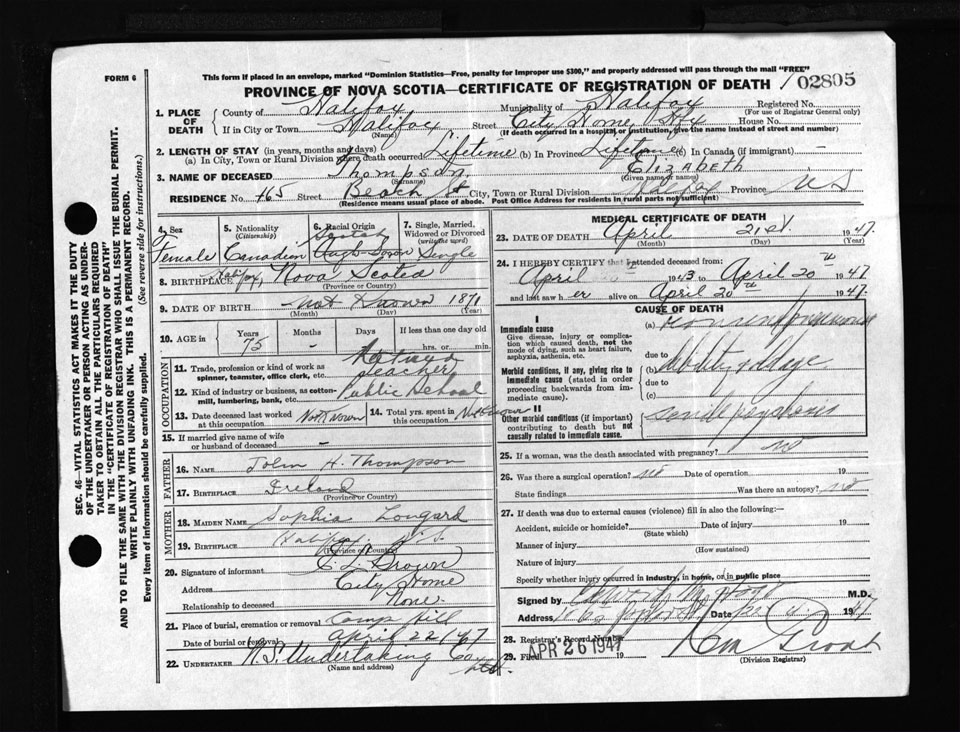 FORM 6
This form if placed in an envelope, marked "Dominion Statistics—Free, penalty for improper use $300," and properly addressed will pass through the mail "FREE"
PROVINCE OF NOVA SCOTIA—CERTIFICATE OF REGISTRATION OF DEATH
02805
1. PLACE OF DEATH
County of Halifax Municipality of Halifax Registered No.
(For use of Registrar General only)
If in City or Town Halifax Street City Home, Hfx House No.
(Name) (If death occurred in a hospital or institution, give the name instead of street and number)
2. LENGTH OF STAY (in years, months and days)
(a) In City, Town or Rural Division where death occurred Lifetime (b) In Province Lifetime (c) In Canada (if immigrant) —
3. NAME OF DECEASED Thompson, Elizabeth
(Surname) (Given name or names)
RESIDENCE No. 465 Street Beach St City, Town or Rural Division Halifax Province N S
(Residence means usual place of abode. Post Office Address for residents in rural parts not sufficient)
4. Sex
Female
5. Nationality
(Citizenship)
Canadian
6. Racial Origin
Scotch
7. Single, Married, Widowed or Divorced
(write the word)
Single
8. BIRTHPLACE Nova Scotia
(Province or Country)
9. DATE OF BIRTH Not Known 1871
(Month) (Day) (Year)
10. AGE in
Years 75
Months –
Days
If less than one day old
hrs. or min.
OCCUPATION
11. Trade, profession or kind of work as spinner, teamster, office clerk, etc. Retired Teacher
12. Kind of industry or business, as cotton-mill, lumbering, bank, etc. Public School
13. Date deceased last worked at this occupation Not Known
14. Total yrs. spent in this occupation Not Known
15. If married give name of wife or husband of deceased –
FATHER
16. NAME John H. Thompson
17. BIRTHPLACE Ireland
(Province or Country)
MOTHER
18. MAIDEN NAME Sophia Longard
19. BIRTHPLACE Halifax N.S.
(Province or Country)
20. Signature of informant L. Brown
Address City Home
Relationship to deceased None.
21. Place of burial, cremation or removal Camp Hill
Date of burial or removal April 22/47
22. UNDERTAKER N.S. Undertaking Co
(Name and address)
MEDICAL CERTIFICATE OF DEATH
23. DATE OF DEATH April 21st 1947
(Month) (Day) (Year)
24. I HEREBY CERTIFY that I attended deceased from:
April 1943 to April 20th 1947
and last saw her alive on April 20th 1947.
CAUSE OF DEATH
I
Immediate cause
Give disease, injury or complication which caused death, not the mode of dying, such as heart failure, asphyxia, asthenia, etc.
(a)
due to
Morbid conditions, if any, giving rise to immediate cause (stated in order proceeding backwards from immediate cause).
(b) debility of old age
due to
(c)
II
Other morbid conditions (if important) contributing to death but not causally related to immediate cause.
senile psychosis
25. If a woman, was the death associated with pregnancy? no
26. Was there a surgical operation? no Date of operation 19
State findings Was there an autopsy? no
27. If death was due to external causes (violence) fill in also the following:—
Accident, suicide or homicide? Date of injury 19
(State which)
Manner of injury
(How sustained)
Nature of injury
Specify whether injury occurred in industry, in home, or in public place
Signed by M.D.
Address Date 1947
28. Registrar's Record Number
29. Filed APR 26 1947 19
(Division Registrar)
SEC. 46—VITAL STATISTICS ACT MAKES IT THE DUTY OF THE UNDERTAKER OR PERSON ACTING AS UNDERTAKER TO OBTAIN ALL THE PARTICULARS REQUIRED IN THE "CERTIFICATE OF REGISTRATION OF DEATH" AND TO FILE THE SAME WITH THE DIVISION REGISTRAR WHO SHALL ISSUE THE BURIAL PERMIT.
WRITE PLAINLY WITH UNFADING INK. THIS IS A PERMANENT RECORD.
Every item of information should be carefully supplied. (See reverse side for instructions.)